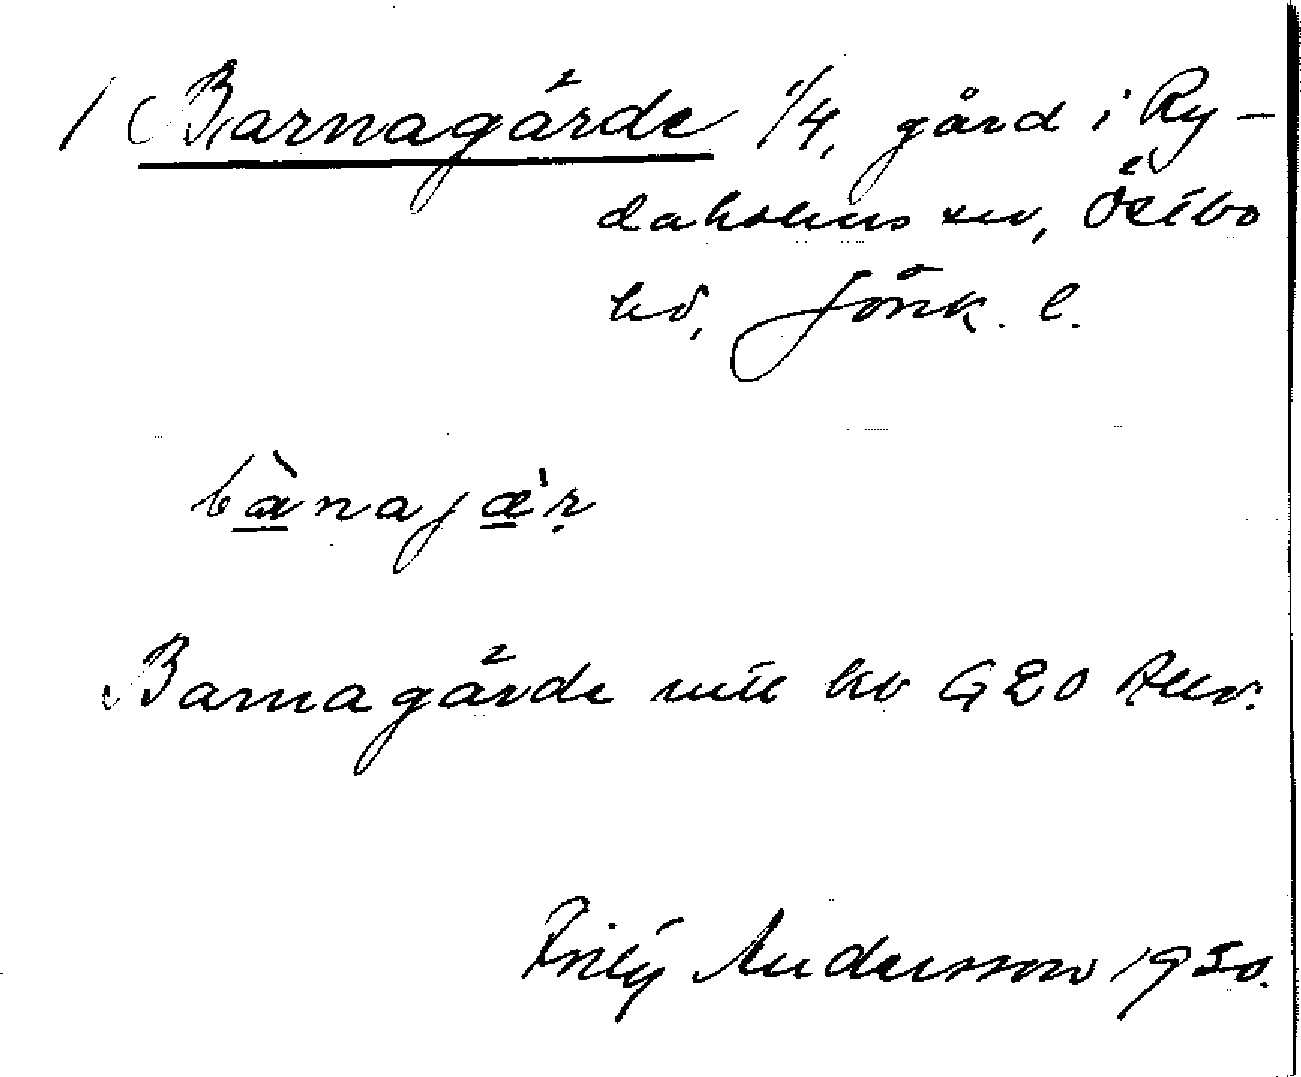 1 Barnagärde 1/4, gård i Ry-
daholms sn, Östbo
hd, Jönk. l.
bànajæ'r
Barnagärde mtl kb G20 Rev.
Frily Andersson 1930.